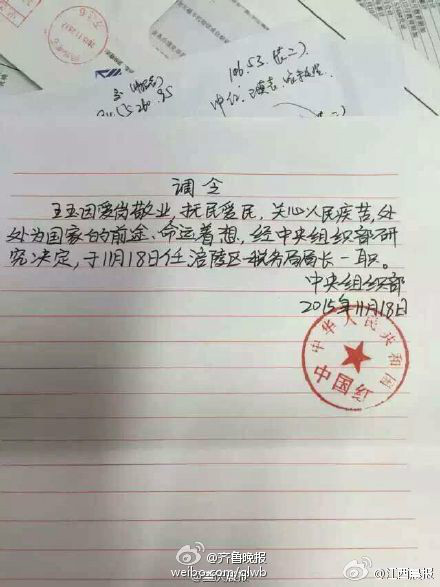 106.53.
调令
王玉因爱岗敬业,抚民爱民,关心人民疾苦,处
处为国家的前途、命运着想,经中央组织部研
究决定,于11月18日任涪陵区一税务局局长一职。
中央组织部
2015年11月18日
中华人民共和国
中国红
齐鲁晚报
weibo.com/qlwb
@江西晨报